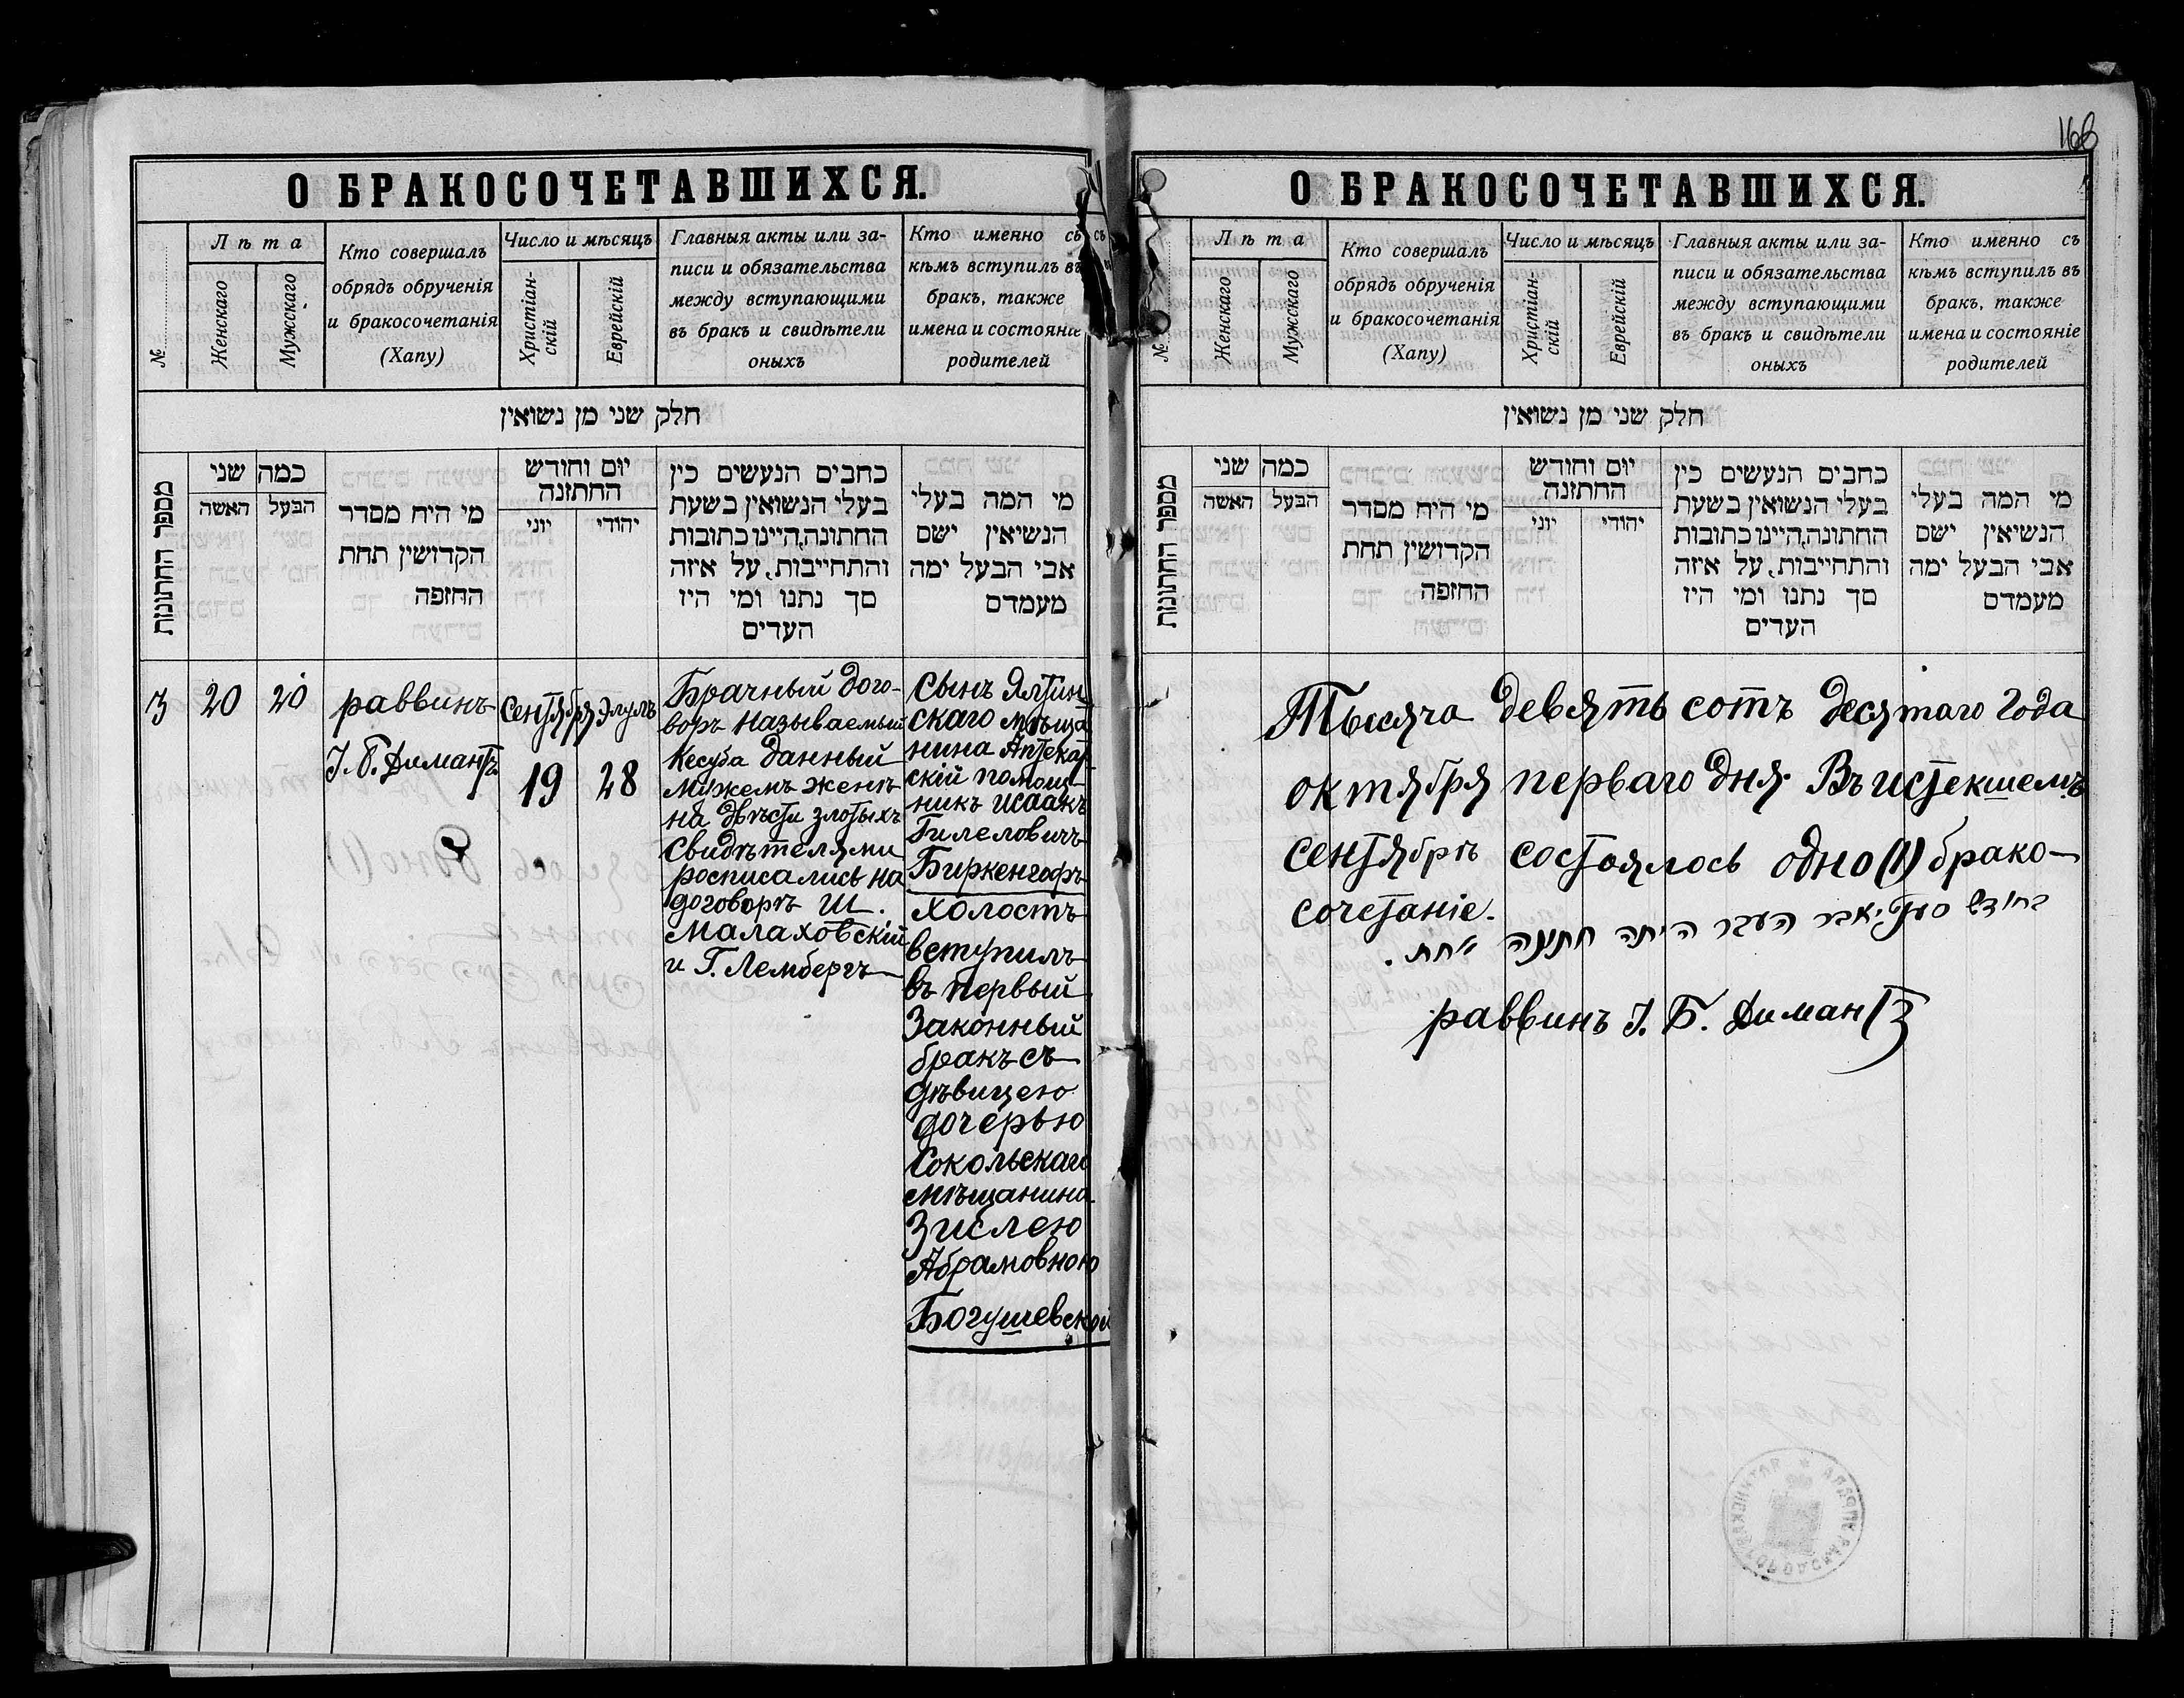 О БРАКОСОЧЕТАВШИХСЯ.
№
Лѣта
Женскаго
Мужскаго
Кто совершалъ
обрядъ обрученія
и бракосочетанія
(Хапу)
Число и мѣсяцъ
Христіан-
скій
Еврейскій
Главныя акты или за-
писи и обязательства
между вступающими
въ бракъ и свидѣтели
оныхъ
Кто именно съ
кѣмъ вступилъ въ
бракъ, также
имена и состояніе
родителей
חלק שני מן נשואין
מספר החתונות
כמה שני
האשה
הבעל
מי היח מסדר
הקדושין תחת
החזפה
יום וחודש
החתזנה
יוני
יהודי
כחבים הנעשים כין
בעלי הנשואין בשעת
החתונה,היינו כתובות
והתחייבות, על איזה
סך נתנו ומי היז
העדים
מי המה בעלי
הנשיאין ישם
אבי הבעל ימה
מעמדם
3
20
20
раввинъ
І. Б. Димантъ
Сентября
19
Элулъ
28
Брачный дого-
воръ называемый
Кесуба данный
мужемъ женѣ
на двѣсти злотыхъ
Свидѣтелями
росписались на
договорѣ Ш.
Малаховскій
и Г. Лембергъ
Сынъ Ялтин
скаго мѣща
нина Аптекар
скій помощ-
никъ Исаакъ
Гилеловичъ
Биркенгофъ
холостъ
вступилъ
въ первый
Законный
бракъ съ
дѣвицею
дочерью
Сокольскаго
мѣщанина
Зислею
Абрамовною
Богушевской
168
О БРАКОСОЧЕТАВШИХСЯ.
№
Лѣта
Женскаго
Мужскаго
Кто совершалъ
обрядъ обрученія
и бракосочетанія
(Хапу)
Число и мѣсяцъ
Христіан-
скій
Еврейскій
Главныя акты или за-
писи и обязательства
между вступающими
въ бракъ и свидѣтели
оныхъ
Кто именно съ
кѣмъ вступилъ въ
бракъ, также
имена и состояніе
родителей
חלק שני מן נשואין
מספר החתונות
כמה שני
האשה
הבעל
מי היח מסדר
הקדושין תחת
החזפה
יום וחודש
החתזנה
יוני
יהודי
כחבים הנעשים כין
בעלי הנשואין בשעת
החתונה,היינו כתובות
והתחייבות, על איזה
סך נתנו ומי היז
העדים
מי המה בעלי
הנשיאין ישם
אבי הבעל ימה
מעמדם
Тысяча девять сотъ десятаго года
октября перваго дня. Въ истекшемъ
сентябрѣ состоялось одно (1) брако-
сочетаніе.
בחודש סענטיאבר העבר היתה חתונה אחת.
раввинъ І. Б. Димантъ